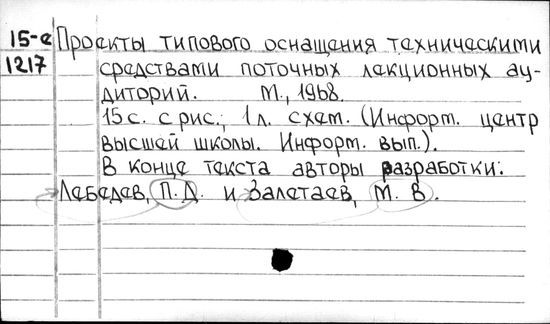 15-е Проекты типового оснащения техническими
1217 средствами поточных лекционных ау-
диторий. М., 1968.
15 с. с рис., 1 л. схем. (Информ. центр
высшей школы. Информ. вып.).
В конце текста авторы разработки:
Лебедев, П.Д. и Залетаев, М. В.